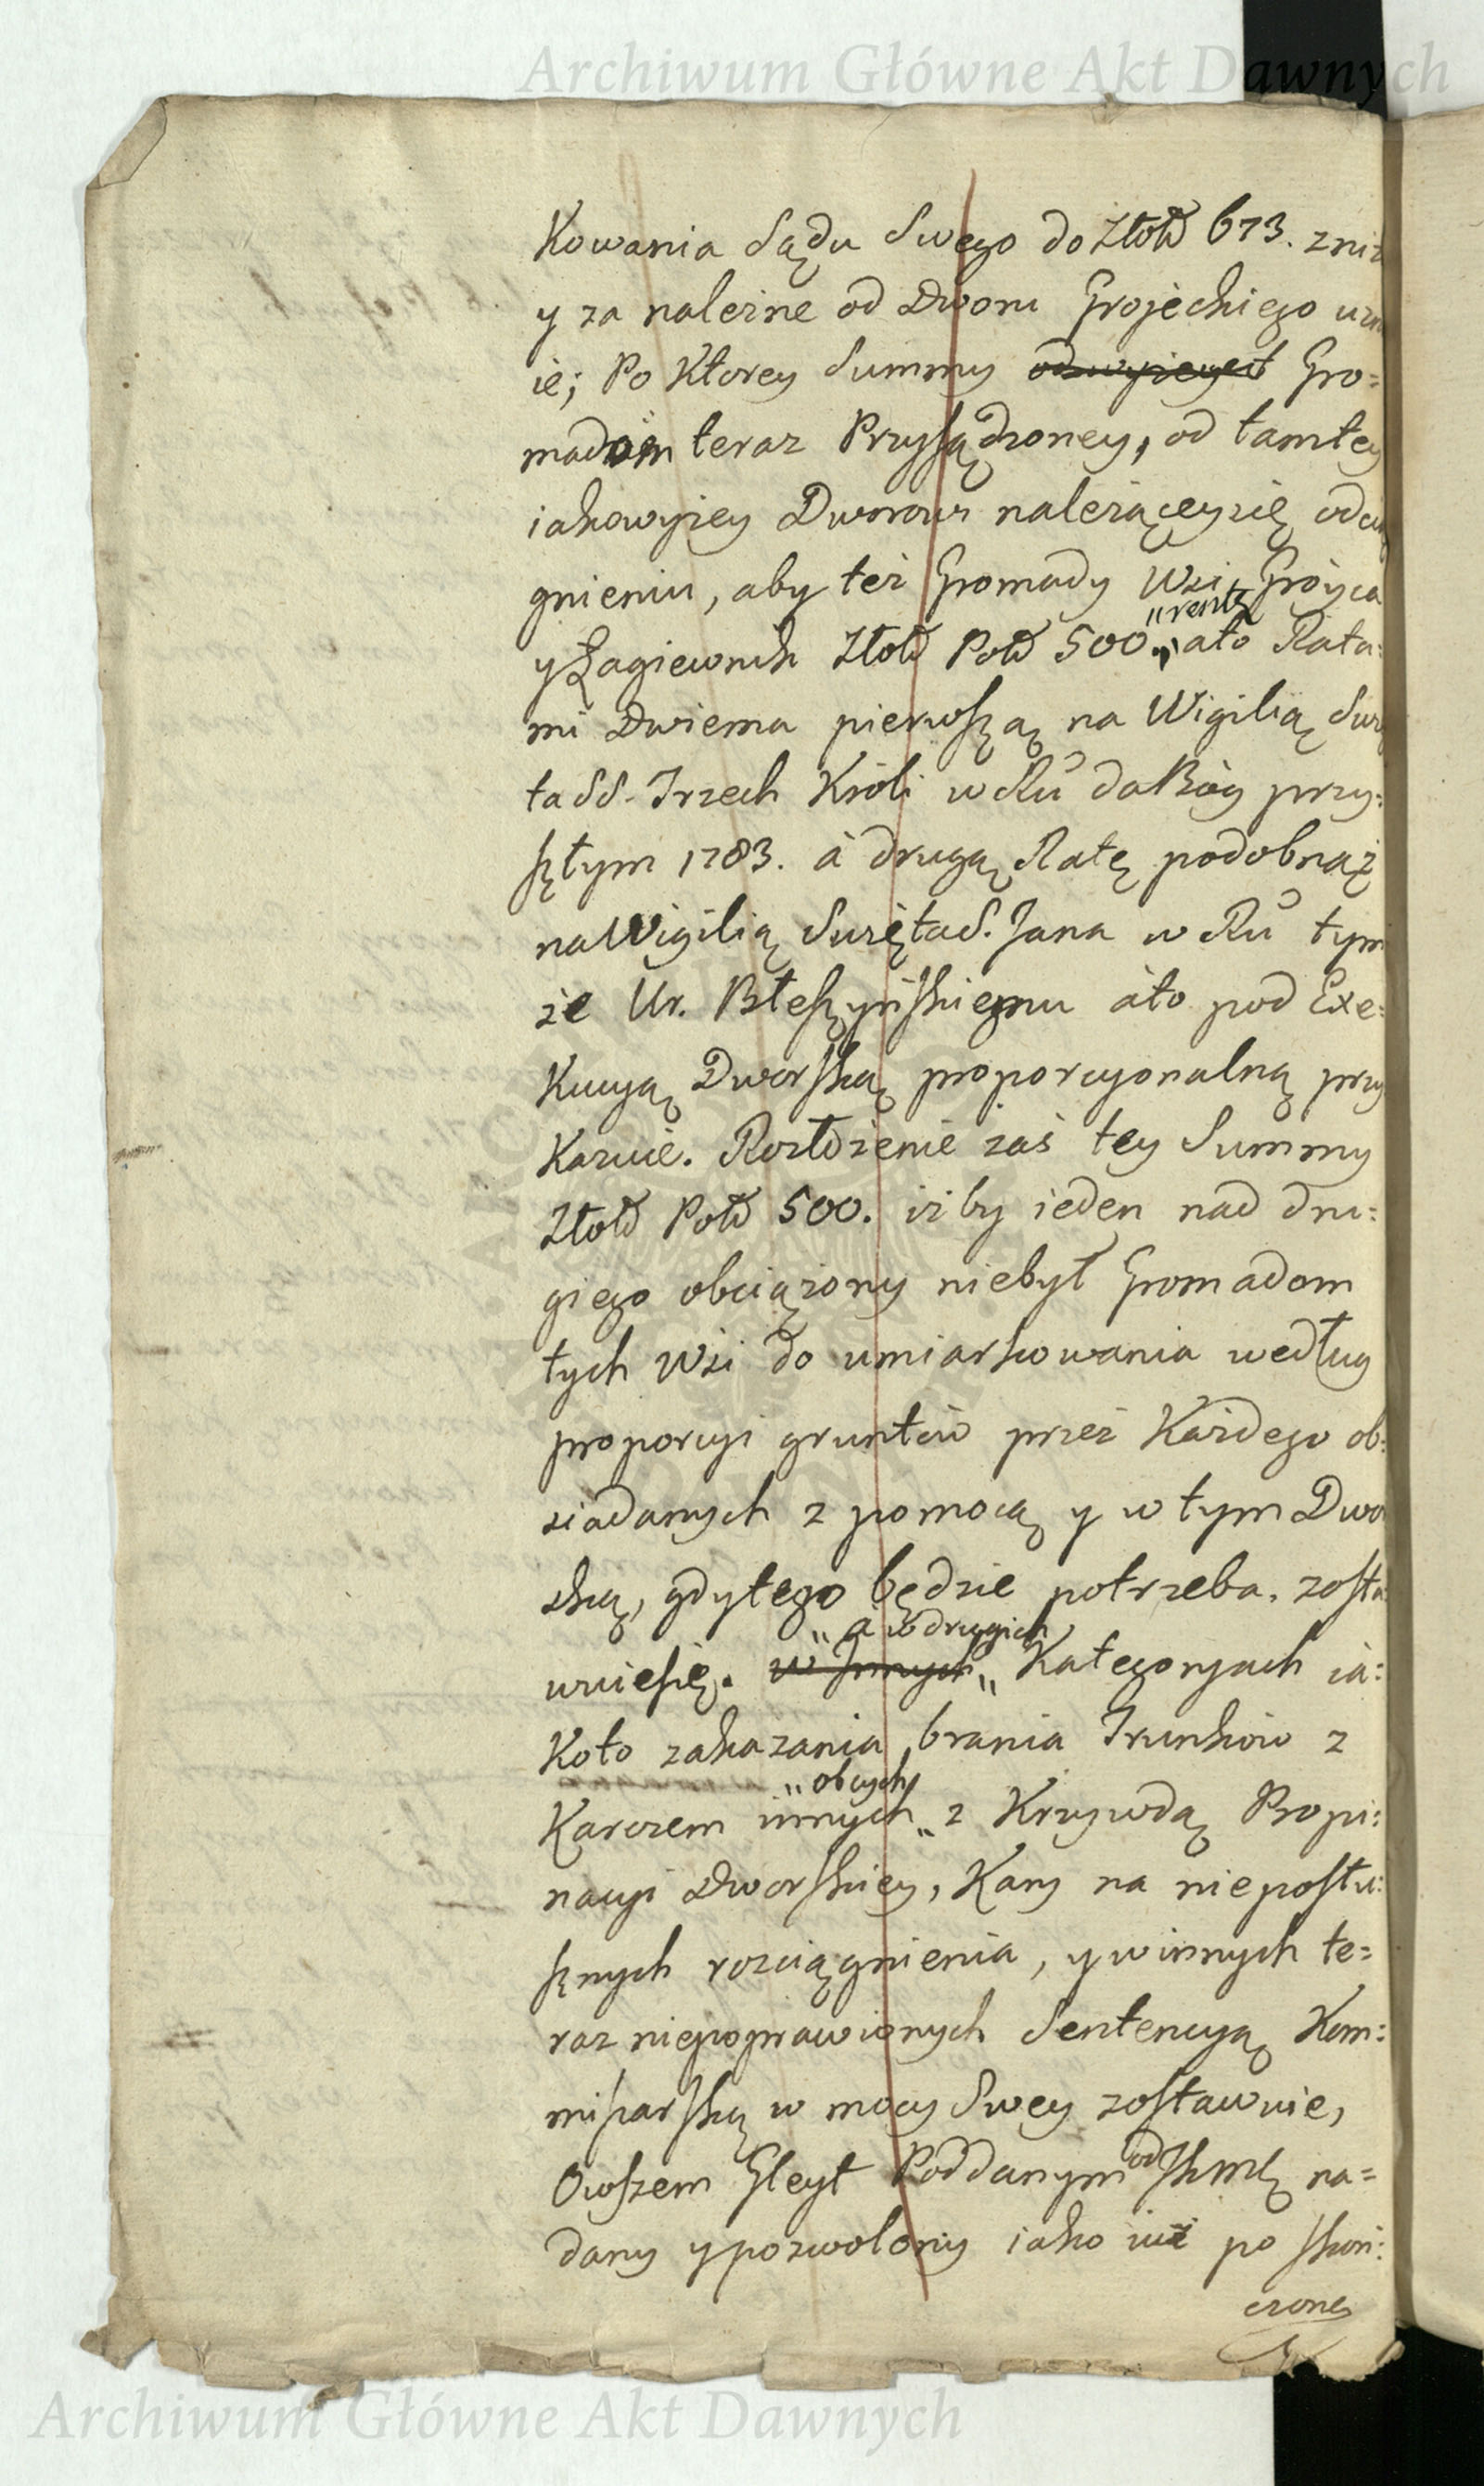 Archiwum Główne Akt Dawnych
Kowania Sądu Swego do Złotł 673. zniż
y za należne od Dworu Grojeckiego uzn
ie; Po Ktorey Summy Gro=
madom teraz Przysądzoney, od tamtey
iakowyżey Dworowi należąceysię odcią
gnieniu, aby też Gromady Wsi Gròyca
"resztę
y Łagiewnik Złotł Polł 500. „ ato Rata=
mi Dwiema pierwszą na Wigilią Swię
ta SS. Trzech Króli w Rũ da Bòg przy=
szłym 1783. à drugą Ratę podobnąż
na Wigilią Swięta S. Jana w Rũ tym
że Ur. Błeszyńskiemu àto pod Exe=
Kucyą Dworską proporcyonalną przy
Kazuie. Rozłożenie zaś tey Summy
Złotł Polł 500. iżby ieden nad dru=
giego obciążony niebył Gromadom
tych Wsi do umiarkowania według
proporcyi gruntów przez Każdego ob=
siadanych z pomocą y w tym Dwo
ską, gdytego będzie potrzeba. zosta
„ a w drugich
wuiesię. w Innych „ Kategoryach ia=
Koto zakazania brania Trunków z
„ obcych
Karczem innych „ z Krzywdą Propi=
nacyi Dworskiey, Kary na nieposłu=
sznych rozciągnienia, y w innych te=
raz niepoprawionych Sentencyą Kom=
misarską w mocy Swey zostawuie,
od
Owszem Gleyt Poddanym JKmci na=
dany y pozwolony iako iuż po skoń=
czoney
Archiwum Główne Akt Dawnych